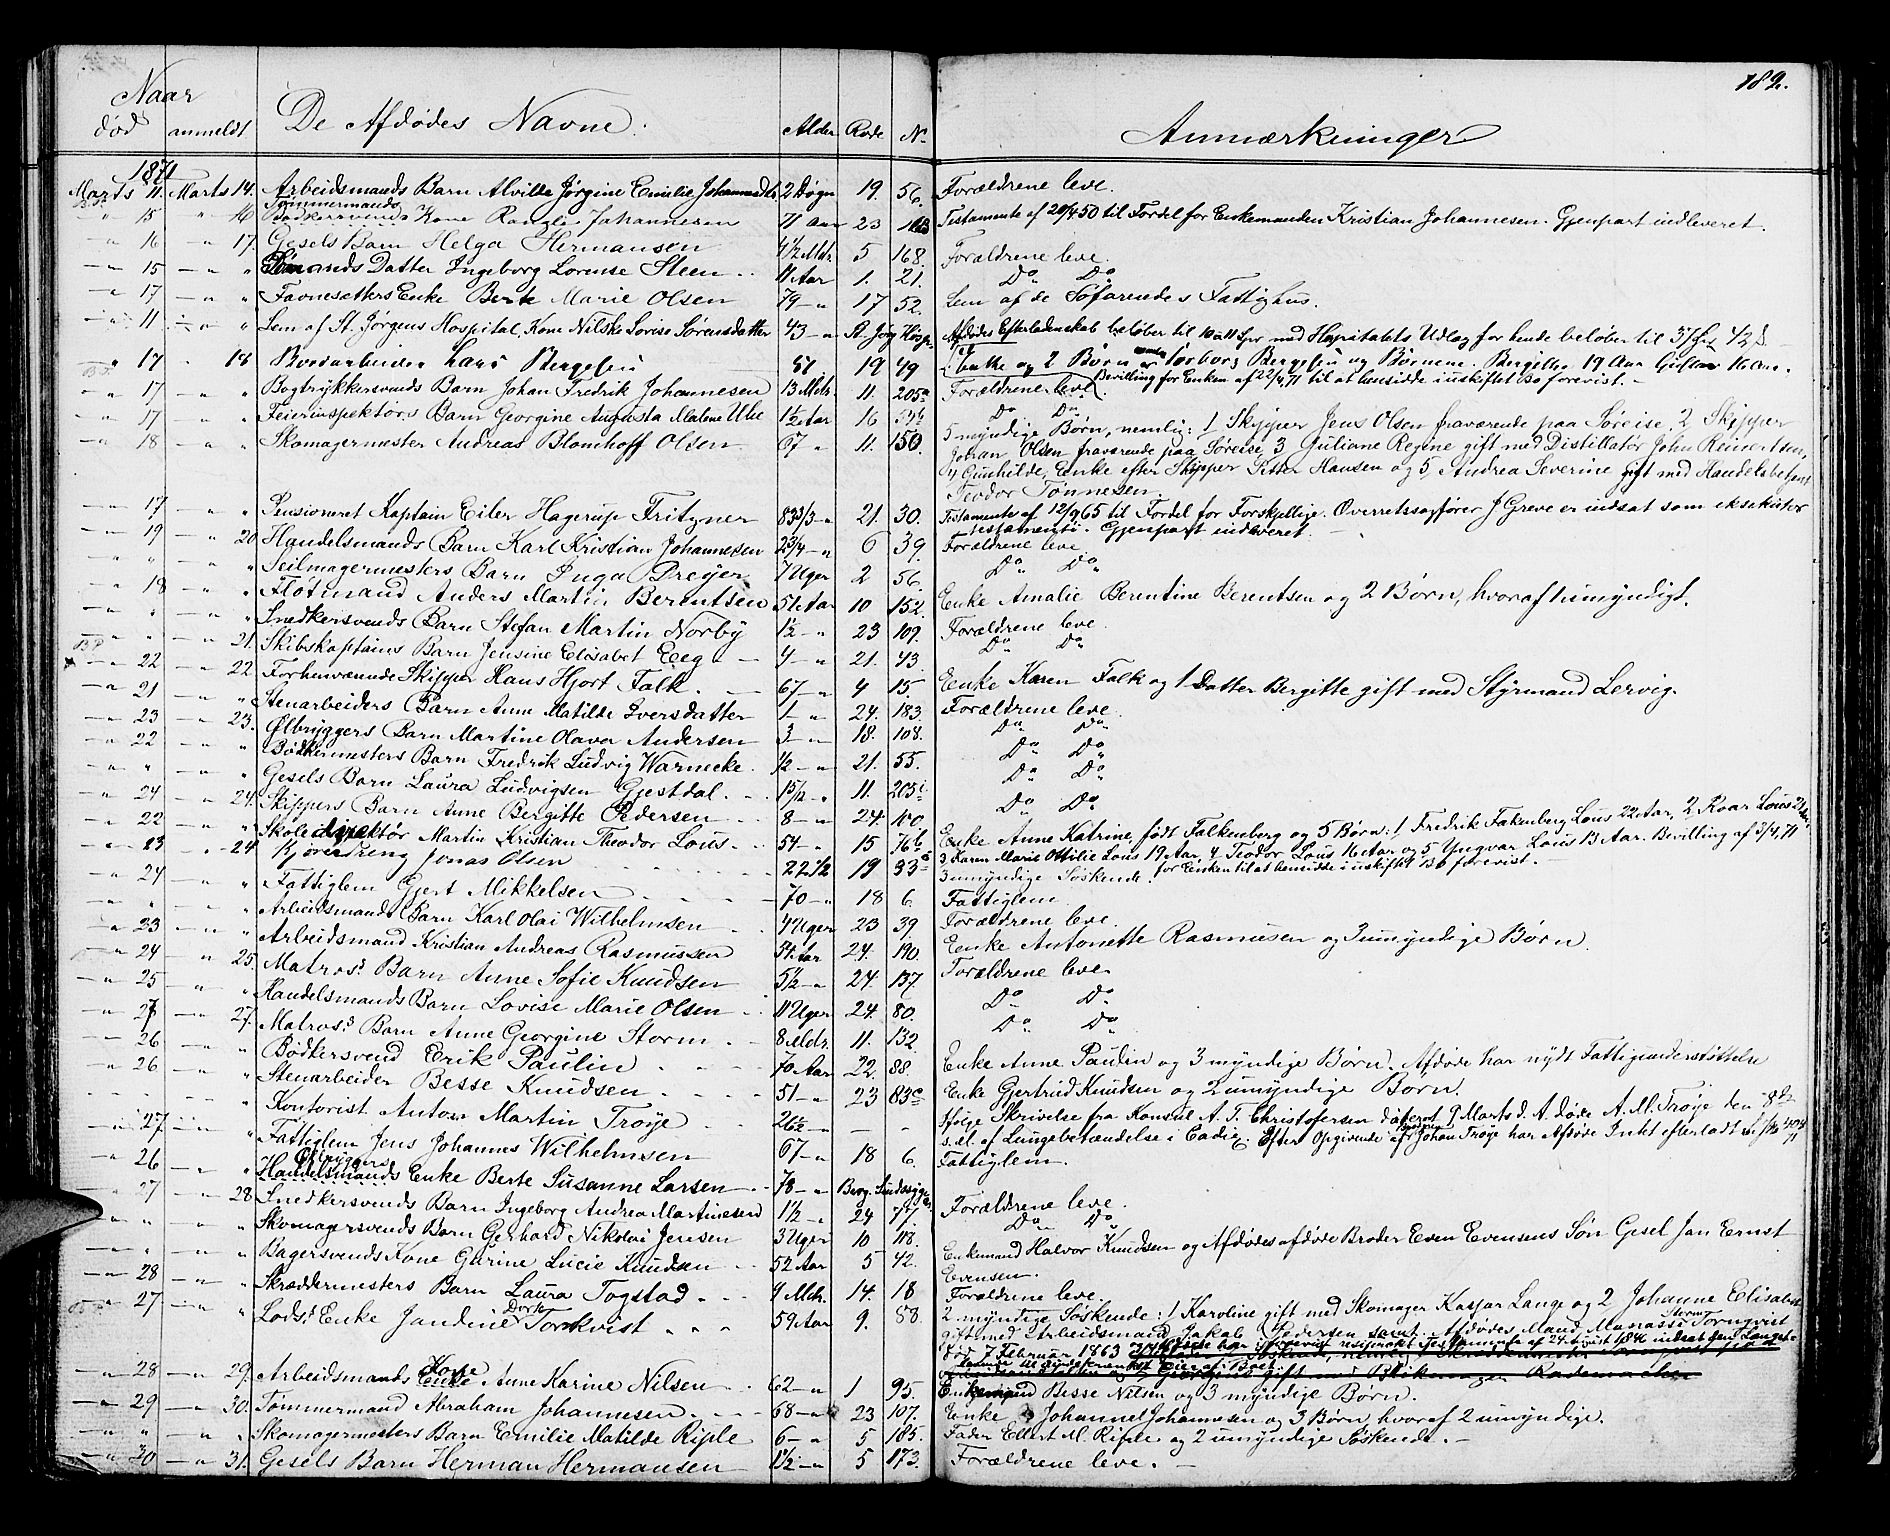 182.
Naar
død anmeldt De Afdødes Navne. Alder Rode No Anmærkninger
1871
Marts 11. Marts 14. Arbeidsmands Barn Alvilde Jørgine Emilie 2 Døgn 19 56. Forældrene leve.
Tømmermands
" 15 " 16 Bødkersvends Kone Johannesen 71 Aar 23 Testamente af 20/4 50 til Fordel for Enkemanden Kristian Johannesen. Gjenpart indleveret.
" 16 " 17. Gesels Barn Helga Hermansen 4 1/2 Mdr. 5 168. Forældrene leve.
" 15 " " Datter Ingeborg Lorense Steen 11 Aar 1. 21. Do Do
" 17 " " Favnesetters Enke Berte Marie Olsen 79 " 17 52. Lem af de Søfarendes Fattighus.
" 11 " " Lem af St. Jørgens Hospital, Kone Nilske Lovise Sørensdatter 43 " St. Jørg. Hosp. Afdødes Efterladenskab beløber til med Hospitalets Udlæg for hende beløber til
" 17 " 18 Lars Bergesen 51 19 49 Enke og 2 Børn Torborg Bergesen og Børnene: 19 Aar 16 Aar.
Bevilling for Enken af 22/4 71 til at hensidde i uskiftet Bo forevist. -
" 17 " " Bogtrykkersvends Barn Johan Fredrik Johannesen 13 Mdr. 11. 205a Forældrene leve
" 17 " " Feierinspektørs Barn Georgine Augusta Malene Ube 1 1/2 Aar 16 Do Do
" 18 " " Skomagermester Andreas Blomhoff Olsen 67 " 11. 150. 5 myndige Børn, nemlig: 1 Skipper Jens Olsen fraværende paa Søreise, 2 Skipper
Johan Olsen fraværende paa Søreise, 3 Juliane Regine gift med Distillatør John Reinertsen,
4 Gunhilde, Enke efter Skipper Hansen og 5, Andrea Severine gift med Handelsbetjent
Teodor Tønnesen.
" 17 " " Pensioneret Kaptain Eiler Hagerup Fritzner 83 " 21. 30. Testamente af 12/9 65 til Fordel for Forskjellige. Overretssagfører J Greve er indsat som eksekutor
testamenti. Gjenpart indleveret.
" 19 " 20 Handelsmands Barn Karl Kristian Johannesen 2 3/4 " 6 39. Forældrene leve
" " " " Seilmagermesters Barn Inga Dreyer 7 Uger 2 56. Do Do
" 18 " " Fløtmand Anders Martin Berentsen 51 Aar 10 152. Enke Amalie Berentine Berentsen og 2 Børn, hvoraf 1 umyndigt.
" " " " Snedkersvends Barn Stefan Martin Norby 1 1/2 " 23 109. Forældrene leve.
" " " 21. Skibskaptains Barn Jensine Elisabet Eeg 4 " 21. 43. Do Do
" 22 " 22. Forhenværende Skipper Hans Hjort Falk. 67 " 4 15. Enke Karen Falk og 1 Datter Bergitte gift med Styrmand Lervig.
" 21 " " Stenarbeiders Barn Anne Matilde Iversdatter 1 " 24. 183. Forældrene leve.
" 23 " 23. Ølbryggers Barn Martine Olava Andersen 3 " 18. 108. Do Do
" 22 " " Bødkermesters Barn Fredrik Ludvig Warneke 1/2 " 21. 55. Do Do
" " " " Gesels Barn Laura Ludvigsen Gjestdal. 11. 205 Do Do
" 24 " 24. Skippers Barn Anne Bergitte Pedersen 8 " 24. 100. Do Do
" 22 " " Skoledirektør Martin Kristian Theodor Lous 54 " 15 76b Enke Anne Katrine, født Falkenberg og 5 Børn: 1 Fredrik Falkenberg Lous 22 Aar, 2 Roar Lous 21 Aar,
3 Karen Marie Ottilie Lous 19 Aar, 4 Teodor Lous 16 Aar og 5 Yngvar Lous 13 Aar. Bevilling af 3/4 71
for Enken til at hensidde i uskiftet Bo forevist. -
" 23 " 24 Kjøredreng Jonas Olsen 22 1/2 19 33a 3 umyndige Søskende.
" 24 " " Fattiglem Gjert Mikkelsen 70 " 18 6. Fattiglem.
" " " " Arbeidsmands Barn Karl Olai Wilhelmsen 4 Uger 23 39. Forældrene leve.
" 23 " " Arbeidsmand Kristian Andreas Rasmussen 54 Aar 24. 190. Enke Antonette Rasmusen og 3 umyndige Børn.
" 24 " 25. Matros's Barn Anne Sofie Knudsen 5 1/2 " 24 137. Forældrene leve.
" 25 " " Handelsmands Barn Lovise Marie Olsen 11 Uger 24. 80. Do Do
" 27 " 27. Matros's Barn Anne Georgine Storm. 8 Mdr. 11. 132. Do Do
" 26 " " Bødkersvend Erik Paulin 70 Aar 22. 88. Enke Anne Paulin og 3 myndige Børn. Afdøde har nydt Fattigunderstøttelse
" 26 " " Stenarbeider Besse Knudsen 51 " 23 83c Enke Gjertrud Knudsen og 2 umyndige Børn.
Kontorist Anton Martin Trøye 26 1/2 " - - Ifølge Skrivelse fra Konsul A. T. Christofersen dateret 9 Marts d. A. døde A. M. Trøye den
s. M. af Lungebetændelse i Cadiz. Efter Opgivende af Johan Trøye har Afdøde Intet efterladt
" 27 " " Fattiglem Jens Johannes Wilhelmsen 67 " 18 6. Fattiglem.
" 26 " " Handelsmands Enke Berte Susanne Larsen 78 " Berg. Sindssyge
" 27 " 28. Snedkersvends Barn Ingeborg Andrea Martinesend 1 1/2 " 24 77. Forældrene leve.
" " " " Skomagersvends Barn Gerhard Nikolai Jensen 3 Uger 10 118. Do Do
" " " " Bagersvends Kone Gurine Lucie Knudsen 52 Aar 5 42. Enkemand Halvor Knudsen og Afdødes afdøde Broder Even Evensens Søn Gesel Jan Ernst
Evensen.
" 28 " " Skræddermesters Barn Laura Togstad 9 Mdr. 14. 18 Forældrene leve.
" 27 " " Lods's Enke Jandine Dorte Tornkvist 59 Aar 9. 88. 2 myndige Søskende: 1 Karoline gift med Skomager Kaspar Lange og 2 Johanne Elisabet
gift med Arbeidsmand Jakob Pedersen samt Afdødes Mand Manasse Storm Tornqvist
død 7 Februar 1863
" 28 " 29. Arbeidsmands Kone Anne Karine Nilsen 62 " 1 95. Enkemand Besse Nilsen og 3 myndige Børn.
" 29 " 30. Tømmermand Abraham Johannesen 68 " 23 107. Enke Johannesen og 3 Børn hvoraf 2 umyndige.
" " " " Skomagermesters Barn Emilie Matilde Riple 6 " 5 185. Fader Ellert M. Riple og 2 umyndige Søskende. -
" 30 " 31. Gesels Barn Herman Hermansen 1 1/2 " 5 173. Forældrene leve. -